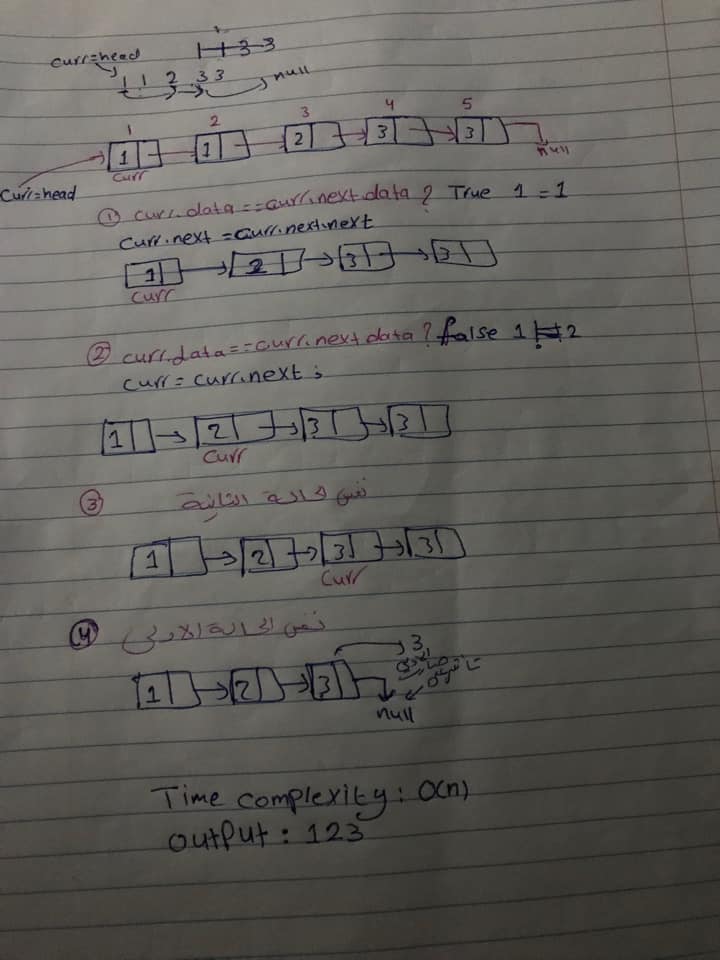 curr=head
1 1 2 3 3 null
1 2 3 4 5
1 1 2 3 3 null
curr
curr=head
① curr.data==curr.next.data? True 1=1
curr.next=curr.next.next
1 2 3 3
curr
② curr.data==curr.next.data? false 1!=2
curr=curr.next;
1 2 3 3
curr
③ نفس الحالة الثانية
1 2 3 3
curr
④ نفس الحالة الاولى
3
1 2 3
null
Time complexity: O(n)
output: 123